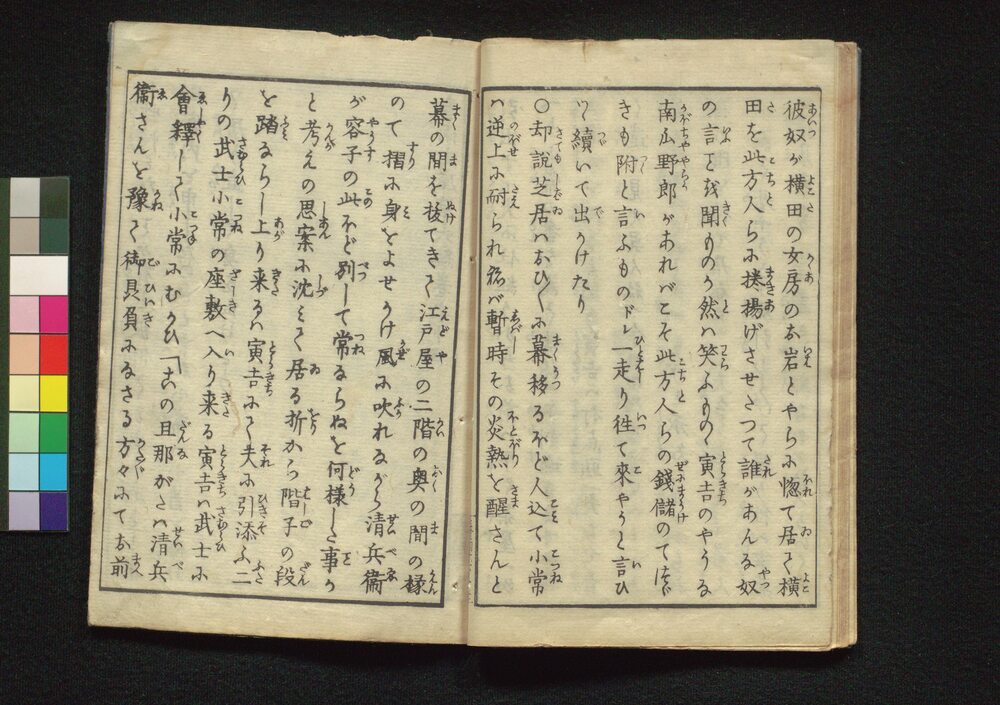 彼奴が横田の女房のお岩とやらに惚て居て横
田を此方人らに捲揚げさせたつて誰があんな奴
の言こと聞ものか然ハ笑ふものゝ寅吉のやうな
南瓜野郎があれバこそ此方人らの錢儲のてつだ
きも附と言ふものドレ一走り往て來やうと言ひ
つゝ續いて出かけたり
〇却説芝居ハおひ〳〵に幕移るほど人込て小常
ハ逆上に耐られねバ暫時その炎熱を醒さんと
幕の間を抜てきて江戸屋の二階の奥の間の椽
のて摺に身をよせかけ風に吹れながら清兵衞
が容子の此ほど別して常ならぬを何様した事か
と考えの思案に沈みて居る折から階子の段
を踏ならし上り来るハ寅吉にて夫に引添ふ二
りの武士小常の座敷へ入り来る寅吉ハ武士に
會釋して小常にむかひ「この旦那がたハ清兵
衞さんと豫て御具負になさる方々にてお前